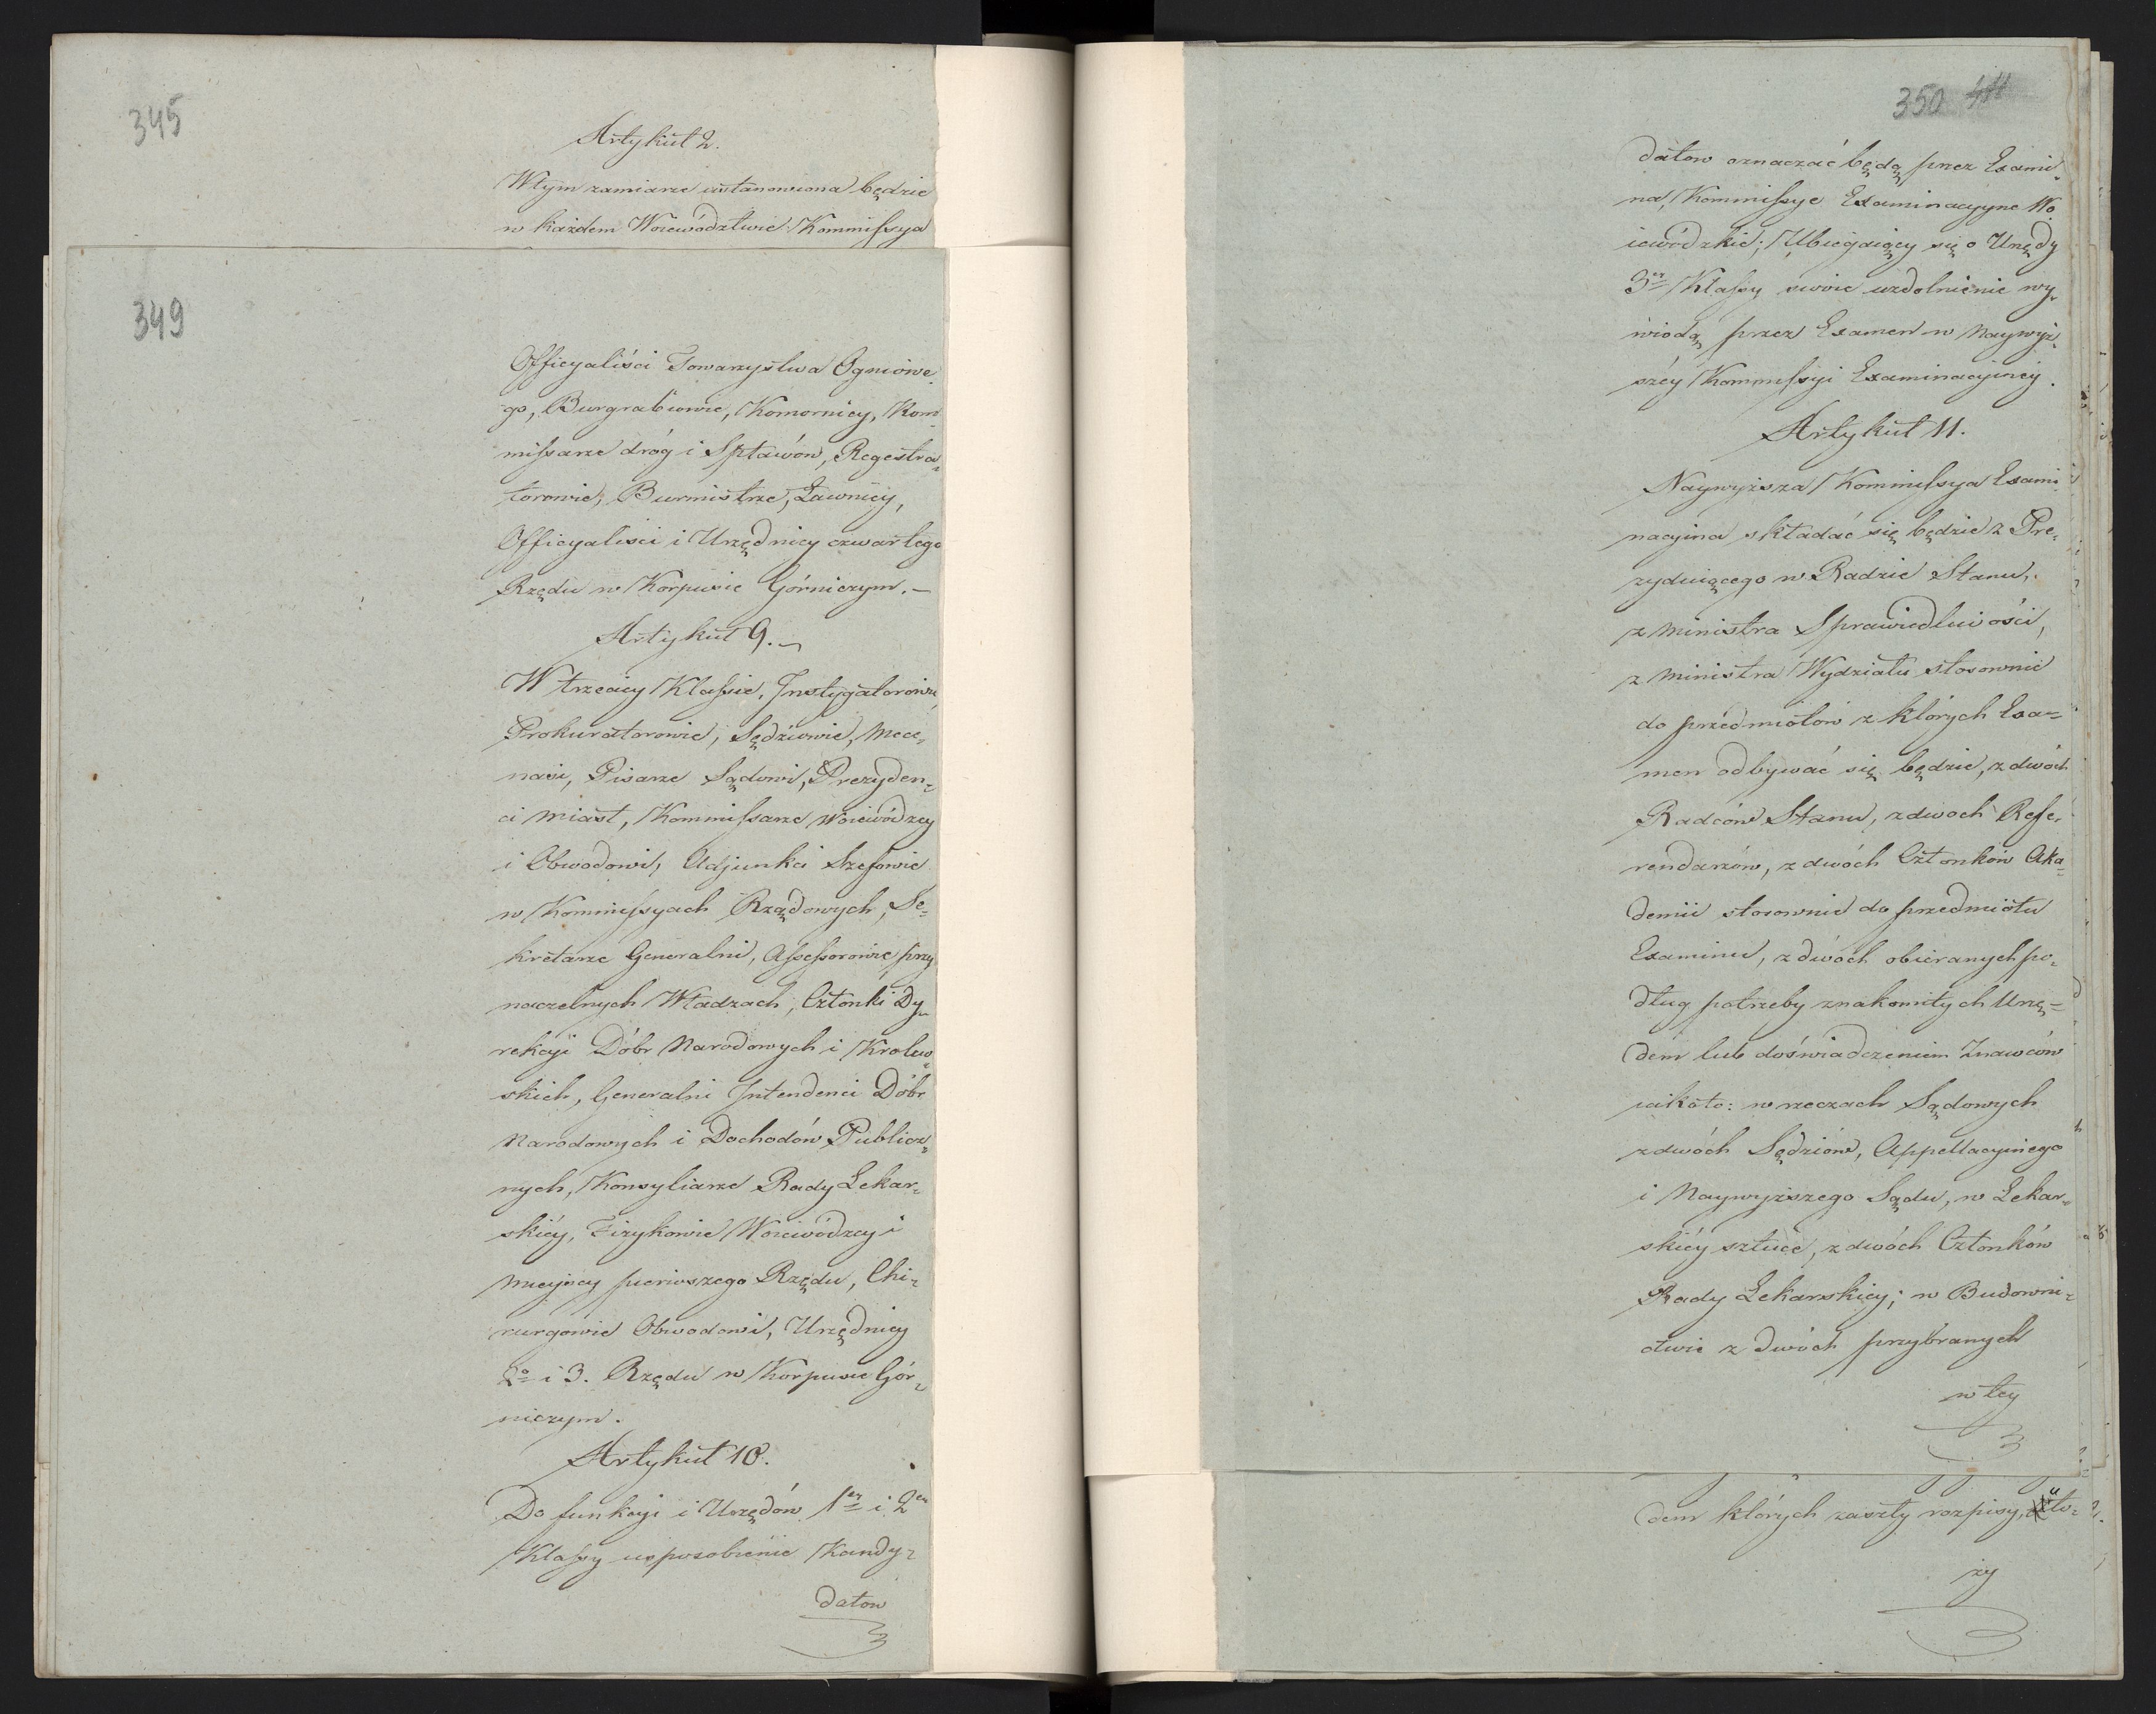 345
Artykuł 2.
W tym zamiarze ustanowiona będzie
w każdem Woiewództwie Kommissya
349
Officyaliści Towarzystwa Ogniowe-
go, Burgrabiowie, Komornicy, Kom-
missarze dróg i Spławów, Regestra-
torowie, Burmistrze, Ławnicy,
Officyaliści i Urzędnicy czwartego
Rzędu w Korpusie Górniczym. —
Artykuł 9. —
W trzeciey Klassie, Instygatorowie,
Prokuratorowie, Sędziowie, Mece-
nasi, Pisarze Sądowi, Prezyden-
ci Miast, Kommissarze Woiewódzcy
i Obwodowi, Adjunkci Szefowie
w Kommissyach Rządowych, Se-
kretarze Generalni, Assessorowie przy
naczelnych Władzach, Członki Dy-
rekcyi Dóbr Narodowych i Królew-
skich, Generalni Intendenci Dóbr
Narodowych i Dochodów Publicz-
nych, Konsyliarze Rady Lekar-
skiéy, Fizykowie Woiewódzcy i
Mieyscy pierwszego Rzędu, Chi-
rurgowie Obwodowi, Urzędnicy
2o i 3. Rzędu w Korpusie Gór-
niczym.
Artykuł 10.
Do funkcyi i Urzędów 1ey i 2ey
Klassy usposobienie Kandy-
datow
350 411
datow oznaczać będą przez Exami-
na, Kommissye Examinacyyne Wo-
iewódzkie; Ubiegaiący się o Urzędy
3ey Klassy swoie uzdolnienie wy-
wiodą przez Examen w Naywyż-
széy Kommissyi Examinacyiney.
Artykuł 11.
Naywyższa Kommissya Exami-
nacyina składać się będzie z Pre-
zyduiącego w Radzie Stanu,
z Ministra Sprawiedliwości,
z Ministra Wydziału stosownie
do przedmiotów z których Exa-
men odbywać się będzie, z dwóch
Radców Stanu, z dwoch Refe-
rendarzów, z dwóch Członków Aka-
demii stosownie do przedmiotu
Examinu, z dwóch obieranych po-
dług potrzeby znakomitych Urzę-
dem lub doświadczeniem Znawców
iakoto: w rzeczach Sądowych
z dwóch Sędziów, Appellacyinego
i Naywyższego Sądu, w Lekar-
skiéy sztuce, z dwóch Członków
Rady Lekarskiey; w Budowni-
ctwie z dwóch przybranych
w tey
dem których zaszły rozpisy,
zy